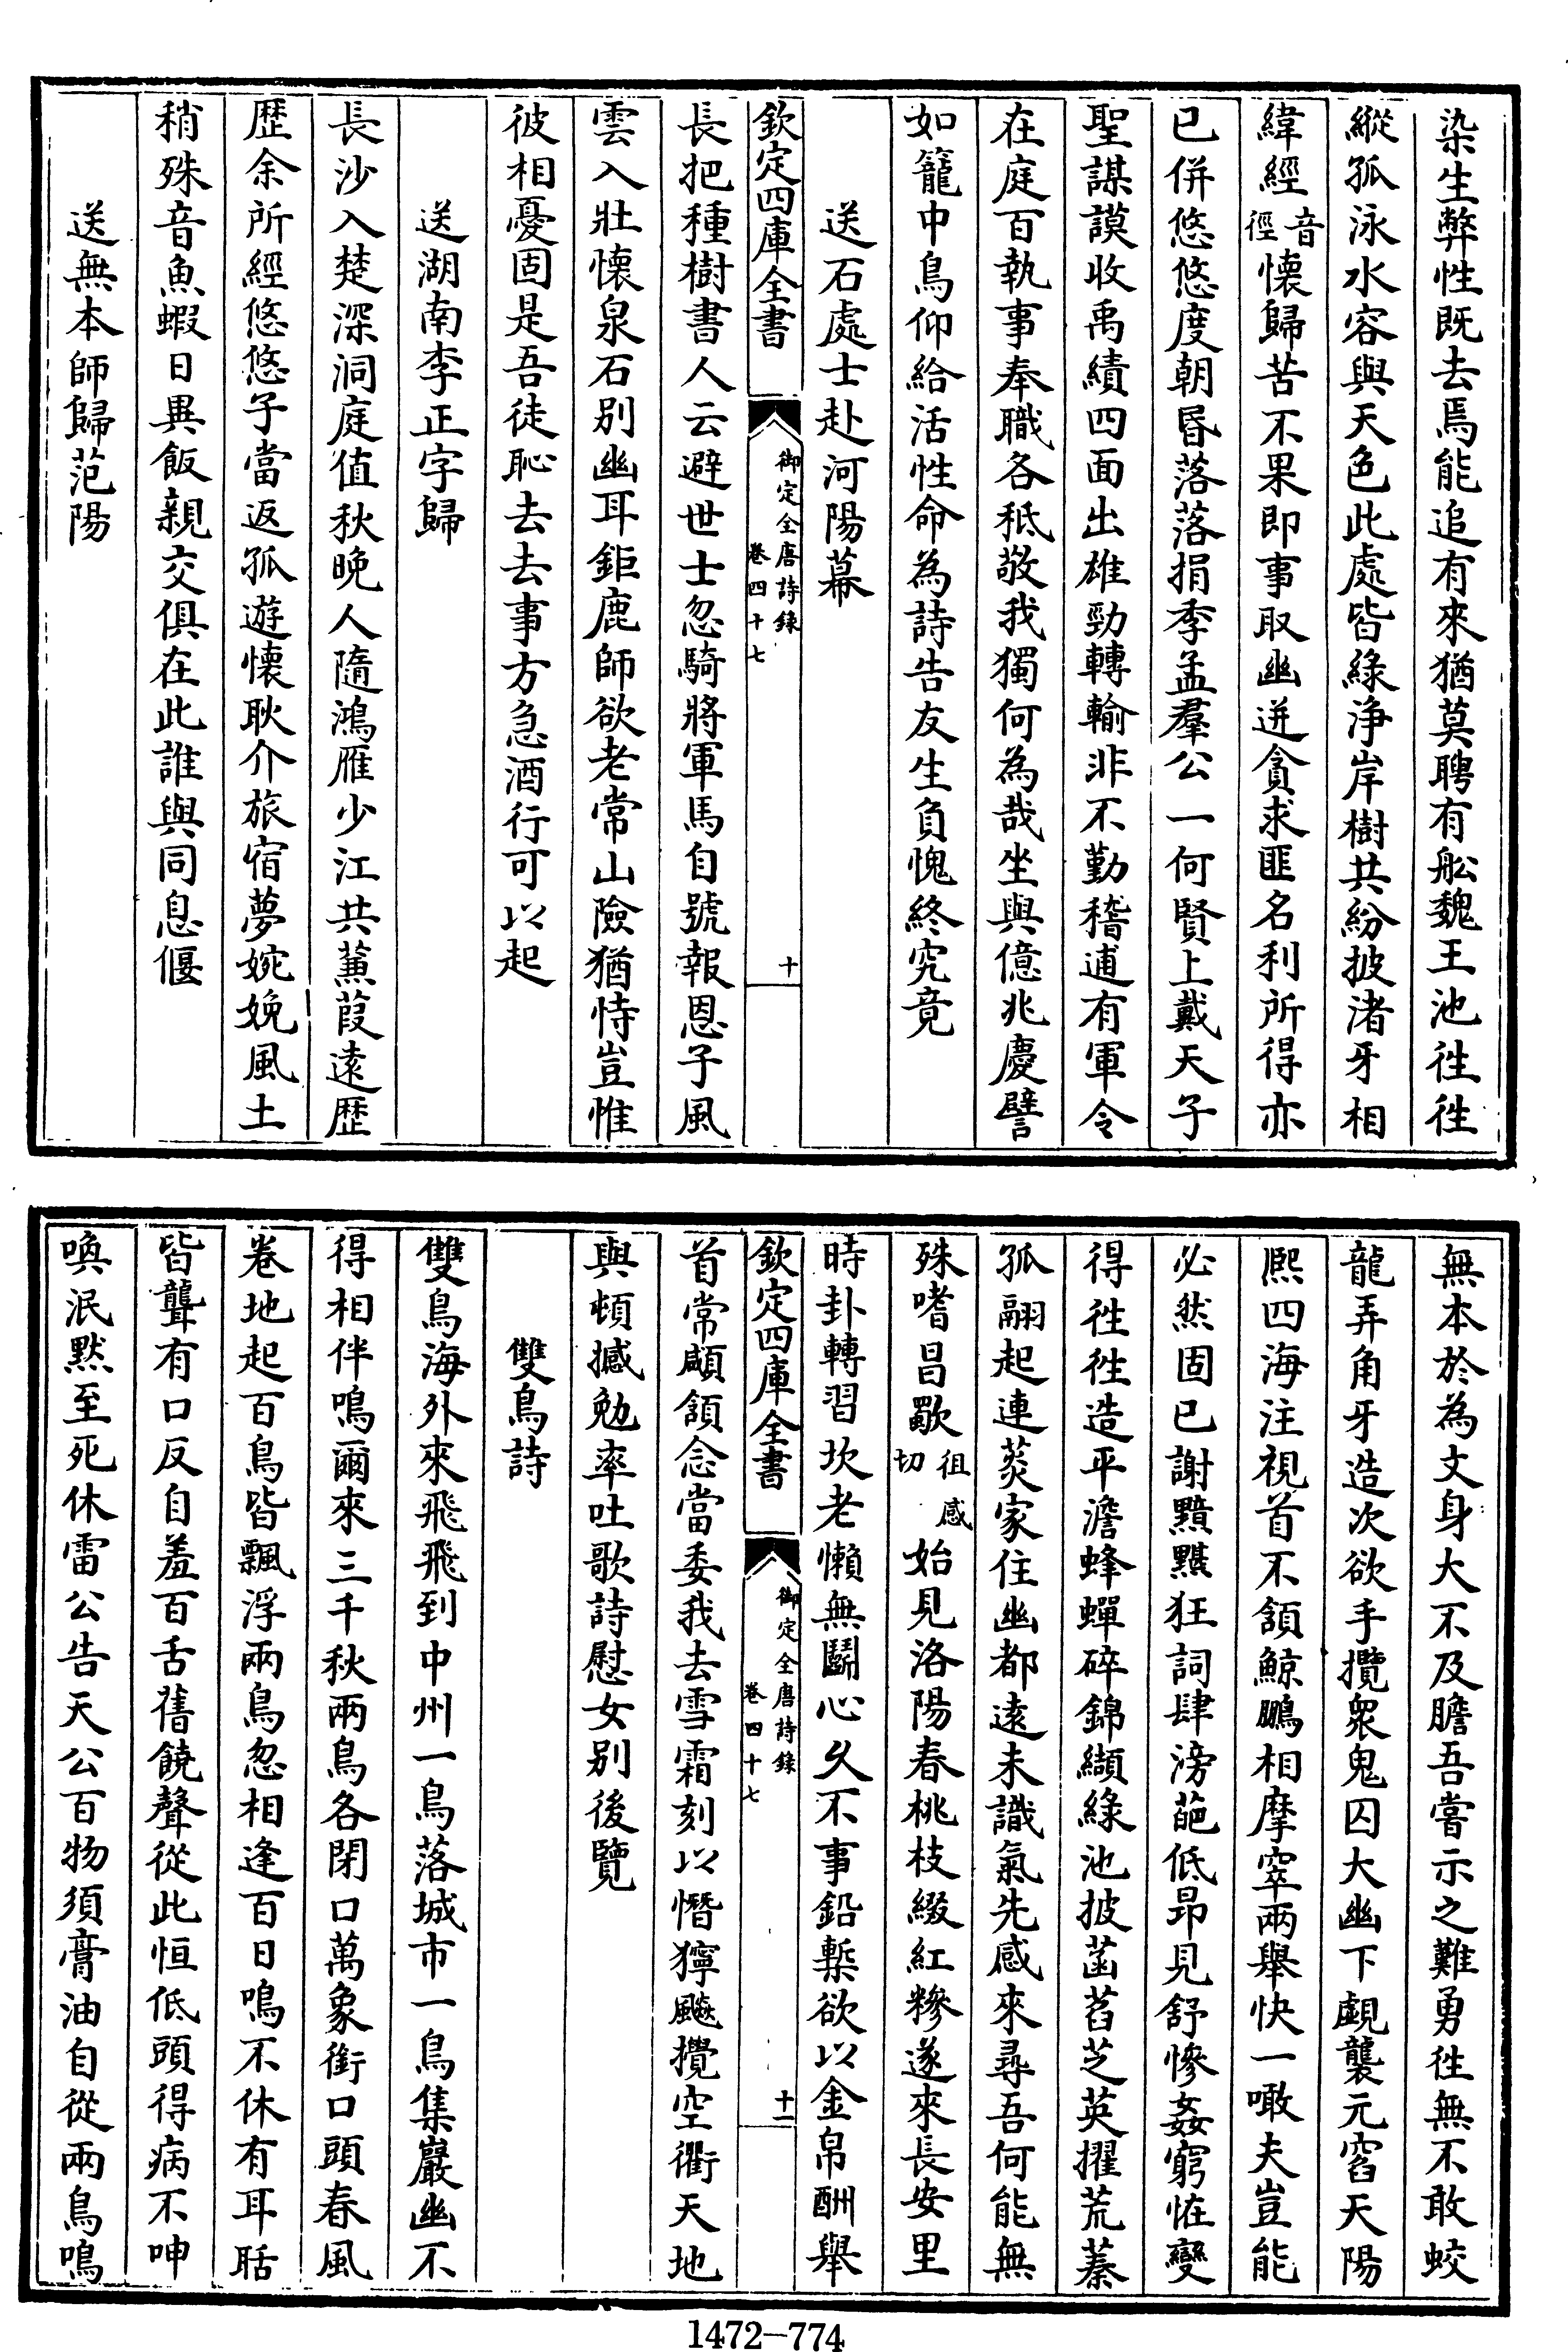 染生弊性既去焉能追有來猶莫聘有舩魏王池徃徃
縱孤泳水容與天色此處皆綠淨岸樹共紛披渚牙相
緯經音徑懷歸苦不果即事取幽迸貪求匪名利所得亦
已併悠悠度朝昏落落捐季孟羣公一何賢上戴天子
聖謀謨收禹績四面出雄勁轉輸非不勤稽逋有軍令
在庭百執事奉職各秪敬我獨何為哉坐與億兆慶譬
如籠中鳥仰給活性命為詩告友生負愧終究竟
送石處士赴河陽幕
欽定四庫全書
御定全唐詩錄
卷四十七
十
長把種樹書人云避世士忽騎將軍馬自號報恩子風
雲入壯懷泉石別幽耳鉅鹿師欲老常山險猶恃豈惟
彼相憂固是吾徒恥去去事方急酒行可以起
送湖南李正字歸
長沙入楚深洞庭值秋晚人隨鴻雁少江共蒹葭遠歷
歷余所經悠悠子當返孤遊懷耿介旅宿夢婉娩風土
稍殊音魚蝦日異飯親交俱在此誰與同息偃
送無本師歸范陽
無本於為文身大不及膽吾嘗示之難勇徃無不敢蛟
龍弄角牙造次欲手攬衆鬼囚大幽下覷襲元窞天陽
熈四海注視首不頷鯨鵬相摩窣兩舉快一噉夫豈能
必然固已謝黯黮狂詞肆滂葩低昂見舒慘姦窮怪變
得徃徃造平澹蜂蟬碎錦纈綠池披菡萏芝英擢荒蓁
孤翮起連菼家住幽都遠未識氣先感來尋吾何能無
殊嗜昌歜徂感切始見洛陽春桃枝綴紅糝遂來長安里
時卦轉習坎老懶無鬭心久不事鉛槧欲以金帛酬舉
欽定四庫全書
御定全唐詩錄
卷四十七
十一
首常顑頷念當委我去雪霜刻以憯獰飈攪空衢天地
與頓撼勉率吐歌詩慰女別後覽
雙鳥詩
雙鳥海外來飛飛到中州一鳥落城市一鳥集巖幽不
得相伴鳴爾來三千秋兩鳥各閉口萬象銜口頭春風
卷地起百鳥皆飄浮兩鳥忽相逢百日鳴不休有耳聒
皆聾有口反自羞百舌舊饒聲從此恒低頭得病不呻
喚泯默至死休雷公告天公百物須膏油自從兩鳥鳴
1472-774